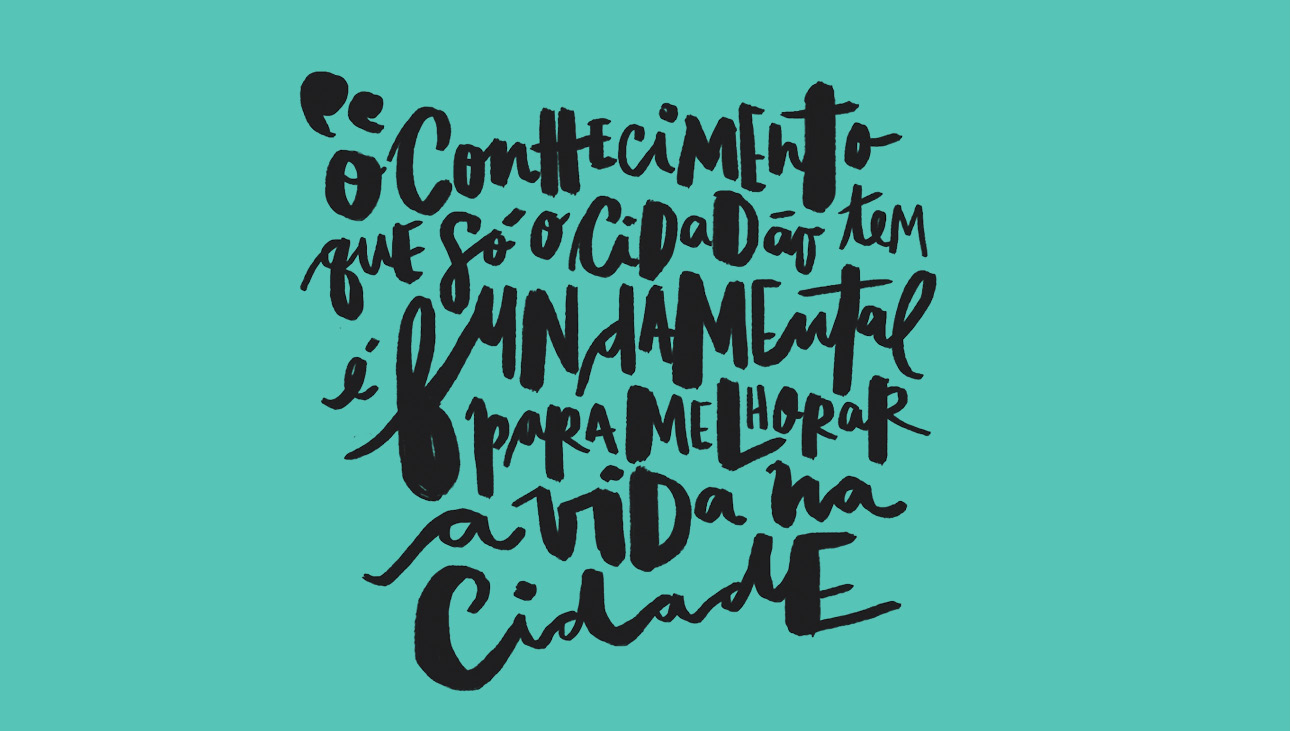 “O Conhecimento
que só o cidadão tem
é fundamental
para melhorar
a vida na
cidade